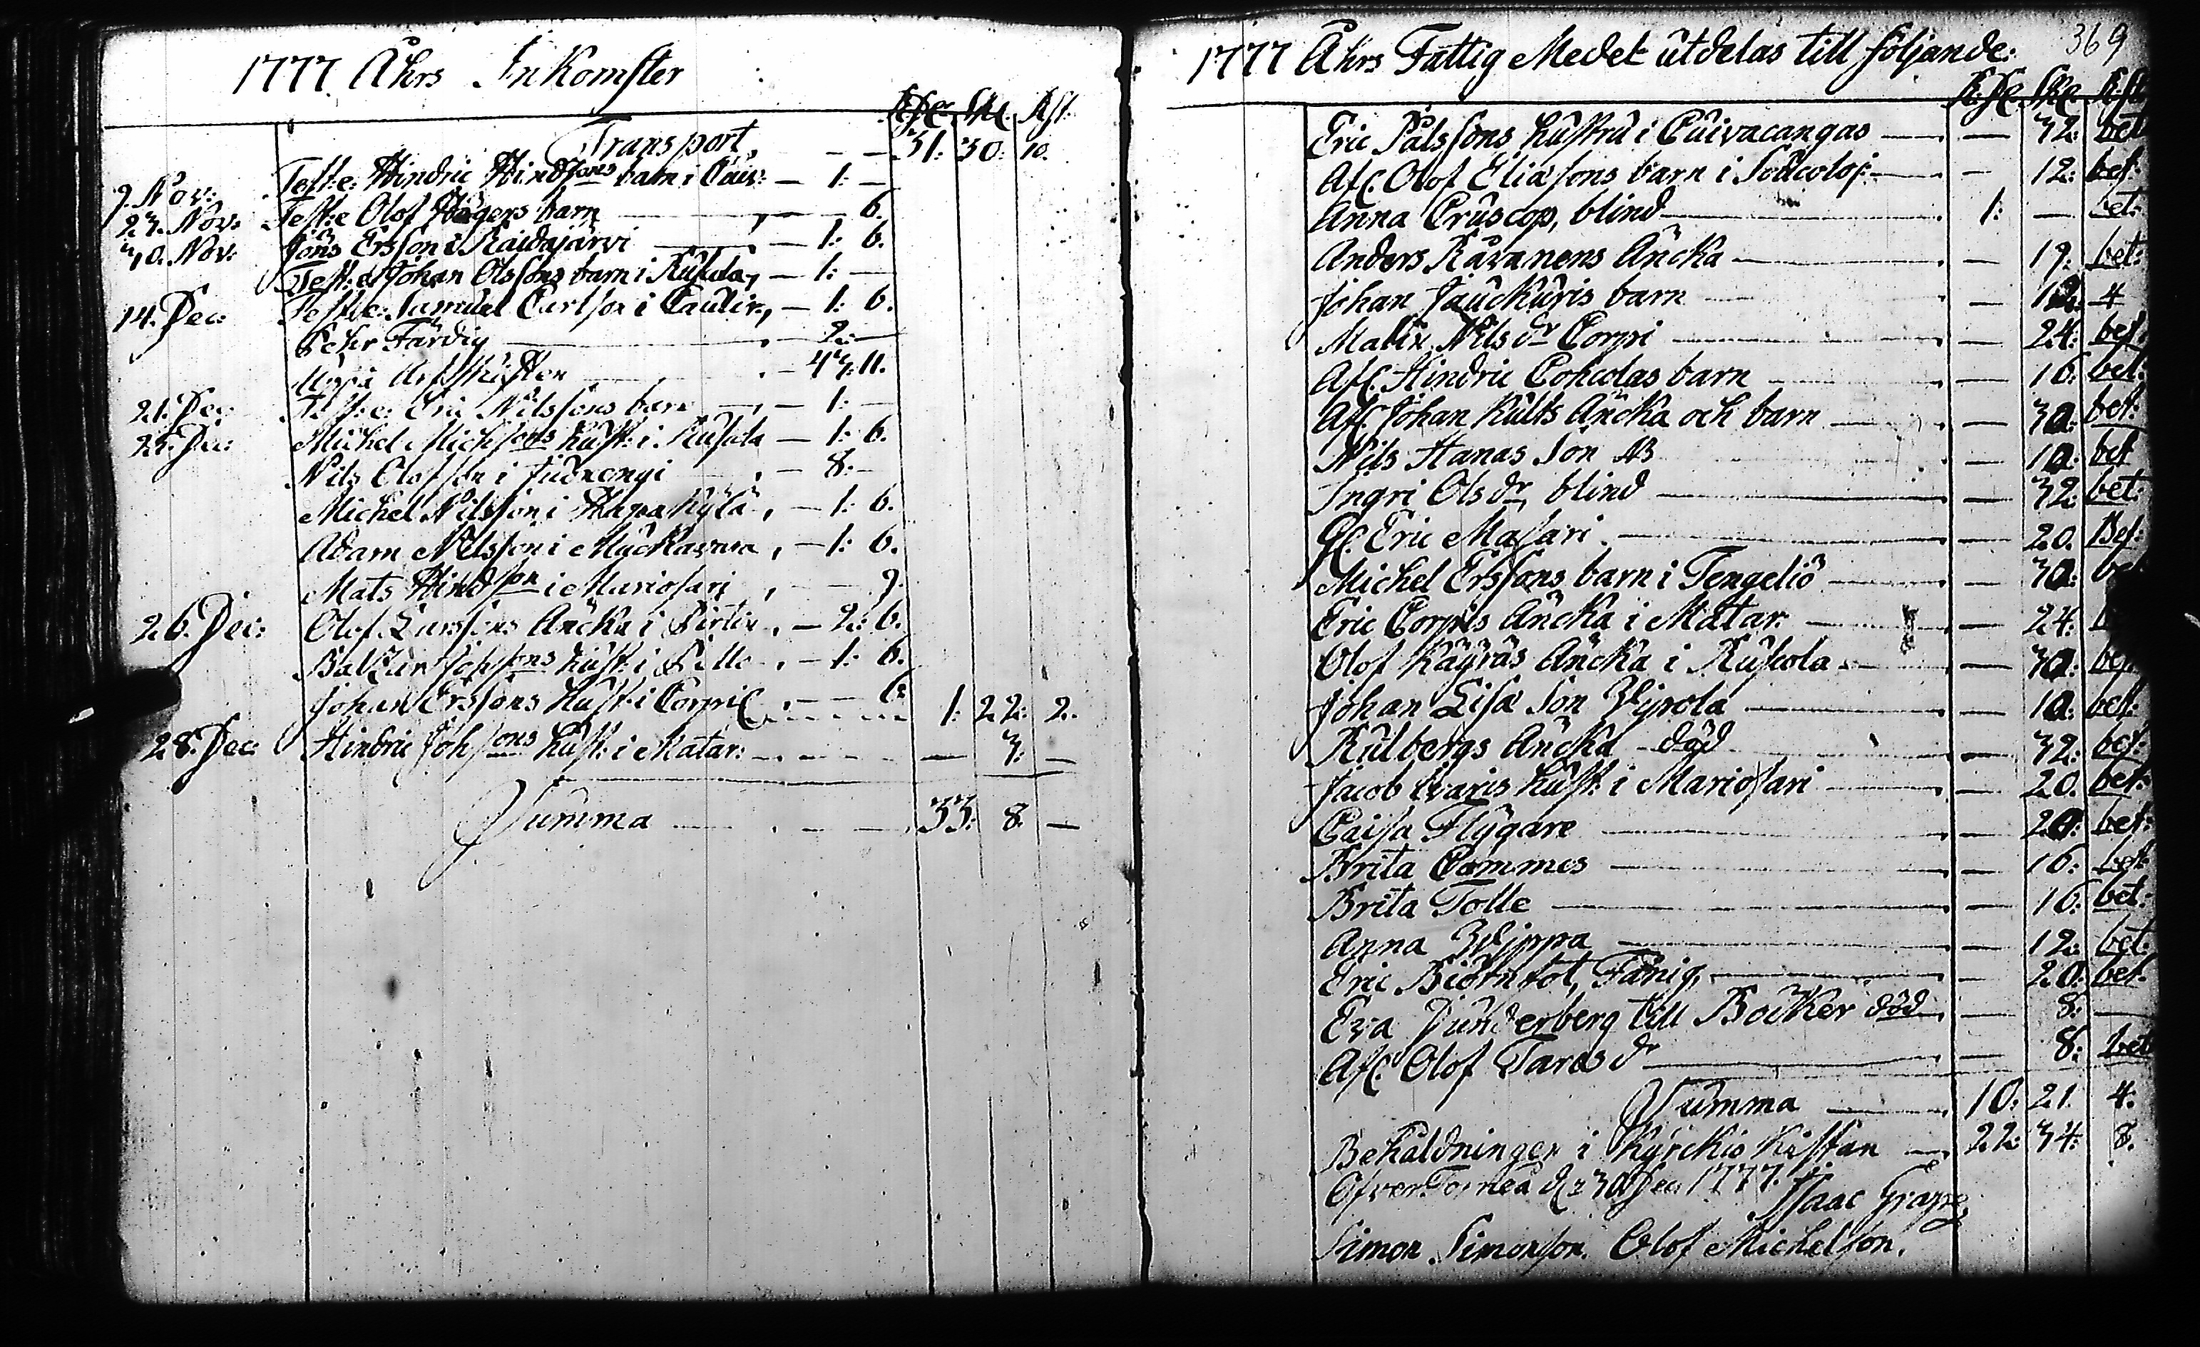 1777 Åhrs Inkomster
Rdr. Sk. Rst.
Transport, — — 31: 30: 10.
9. Nov: Test:e Hindric Hindsons barn i Cuiv: — 1: —
23. Nov: Test:e Olof Hägers barn — 6.
30. Nov: Jöns Ersson i Raidajärvi — 1: 6.
Test:e Johan Olssons barn i Ruskola, — 1: —
14. Dec: Test:e Samuel Carlson i Caulir., — 1: 6.
Pehr Färdig — 2: —
43: 11.
21. Dec: Test:e: Eric Nilssons barn — 1: —
25. Dec: Michel Michsons hust: i Ruskola — 1: 6.
Nils Olofson i Juoxengi — 8: —
Michel Nilsson i Kylä, — 1: 6.
Adam Nilsson i Myckavara, — 1: 6.
Mats Hindson i Mariosari, — 9.
26. Dec: Olof Larssons Äncka i Pirtin. — 2: 6.
Baltzar Johsons hust: i Pello. — 1: 6.
Johan Erssons hust: i Corpic — 6. 1: 22: 2.
28. Dec: Hindric Johsons hust: i Matar: — 3: —
Summa — 33: 8. —
369
1777 Åhrs Fattig Medel utdelas till följande:
Rdr. Sk. Rst
Eric Pålssons hustru i Cuivacangas — — 32: bet
Afl. Olof Eliasons barn i — 12: bet:
Anna Cruscop, blind — 1: — bet:
Anders Ravanens Äncka — — 19: bet:
Johan Jauckuris barn — 4
Malin Nils dr Corpi — — 24: bet:
Afl. Hindric Cohcolas barn — 16: bet:
Afl. Johan Hults Äncka och barn — — 30: bet:
Nils Hanas Son — 10: bet
Ingri Ols dr, blind — — 32: bet:
Gl. Eric Masari — — 20. Bet:
Michel Erssons barn i Tengeliö — — 30:
Eric Corpis Äncka i Matar: — — 24:
Olof Käyräs Äncka i Ruskola — — 30: bet
Johan Lisa Son — 10: bet:
Kulbergs Äncka död — 32: bet:
Jacob Ivaris hust: i Mariosari — — 20. bet:
Caisa Flygare — — 20: bet:
Brita Commes — — 16: bet:
Brita Tolle — — 16: bet:
Anna — — 12: bet:
Eric Biörnfot, Fånig, — — 20: bet.
Eva Dunderberg till Böcker död — 8: —
Afl. Olof Taras dr — — 8: bet
Summa — 10: 21. 4.
Behåldningen i Kyrckio Kistan — 22: 34: 8.
Öfver Torneå d. 30 Dec 1777. Isaac Grape
Simon Simonson. Olof Michelson.